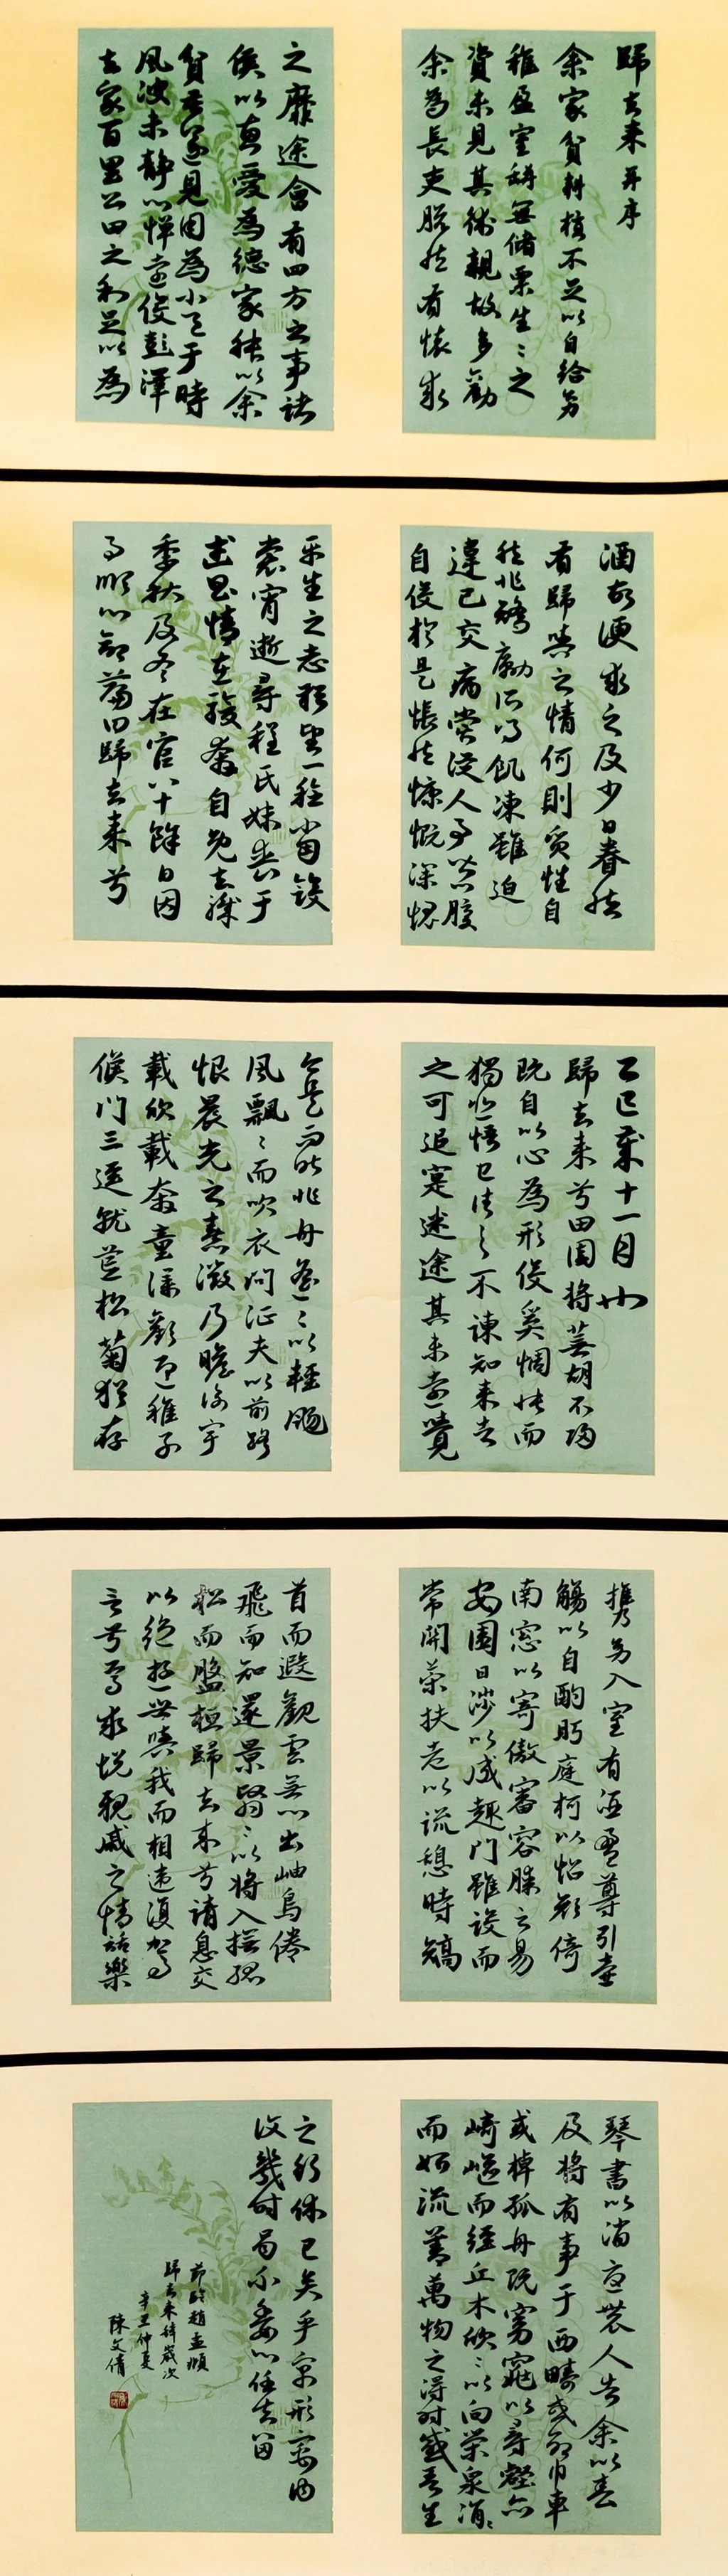 歸去来并序
余家貧耕植不足以自給幼
稚盈室缾無儲粟生〻之
資未見其術親故多勸
余為長吏脫然有懷求
之靡途會有四方之事諸
侯以惠愛為德家叔以余
貧苦遂見用為小邑于時
風波未静心惮遠役彭澤
去家百里公田之利足以為
酒故便求之及少日眷然
有歸與之情何則質性自
然非矯勵所得飢凍雖迫
違己交病嘗從人事皆口腹
自役於是悵然慷慨深愧
平生之志猶望一稔當斂
裳宵逝尋程氏妹喪于
武昌情在駿奔自免去職
季秋及冬在官八十餘日因
事順心命篇曰歸去来兮
乙巳歲十一月也
歸去来兮田園將蕪胡不歸
既自以心為形役奚惆悵而
獨悲悟已往之不諫知来者
之可追寔迷途其未遠覺
今是而昨非舟遙〻以輕颺
風飄〻而吹衣問征夫以前路
恨晨光之熹微乃瞻衡宇
載欣載奔童僕歡迎稚子
候門三逕就荒松菊猶存
携幼入室有酒盈尊引壺
觴以自酌眄庭柯以怡顔倚
南窓以寄傲審容膝之易
安園日涉以成趣門雖設而
常開策扶老以流憩時矯
首而遐觀雲無心出岫鳥倦
飛而知還景翳〻以將入撫孤
松而盤桓歸去来兮請息交
以絶遊世與我而相違復駕
言兮焉求悦親戚之情話樂
琴書以消憂農人告余以春
及將有事于西疇或命巾車
或棹孤舟既窈窕以尋壑亦
崎嶇而經丘木欣〻以向榮泉涓〻
而始流善萬物之得時感吾生
之行休已矣乎寓形寓内
復幾时曷不委心任去留
節臨趙孟頫
歸去来辞歲次
辛丑仲夏
陳文倩